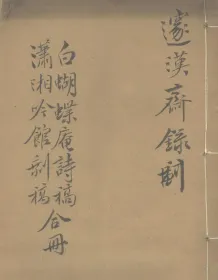 邃漢齋錄副
白蝴蝶庵詩稿
瀟湘吟館剩稿合冊